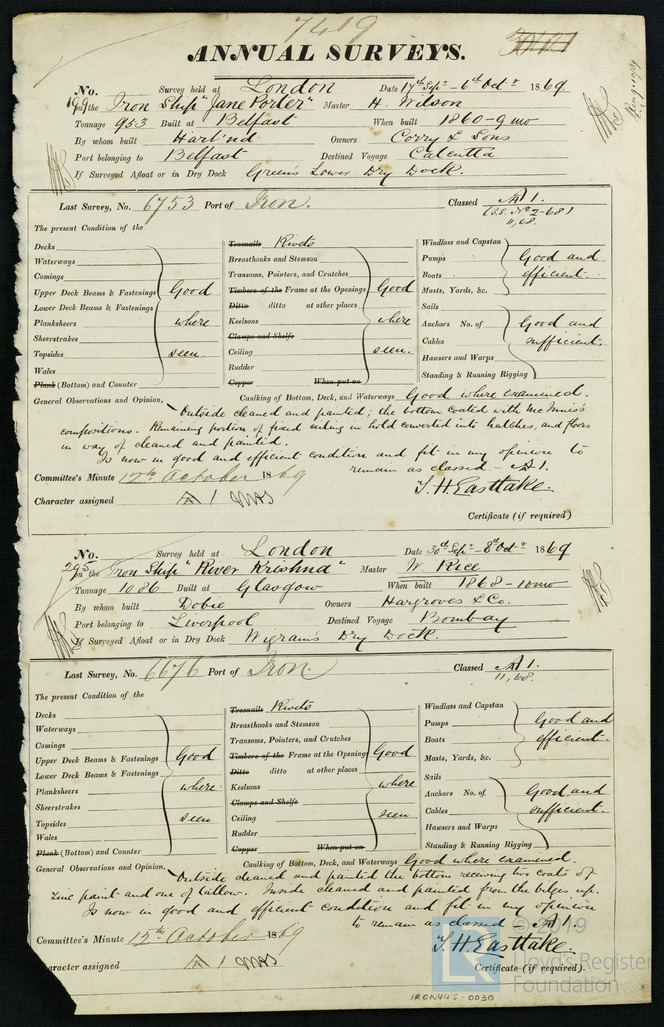 7419
ANNUAL SURVEYS.
No. Survey held at London Date 17th Sepr - 6th Octr 1869
199 on the Iron Ship "Jane Porter" Master H. Wilson
Tonnage 953 Built at Belfast When built 1860-9mo
By whom built Harl'nd Owners Corry & Sons
Port belonging to Belfast Destined Voyage Calcutta
If Surveyed Afloat or in Dry Dock Green's Lower Dry Dock.
Last Survey, No. 6753 Port of Iron. Classed A 1.
(S.S. No 2-68)
11,68.
The present Condition of the
Decks
Waterways
Comings
Upper Deck Beams & Fastenings
Lower Deck Beams & Fastenings
Planksheers
Sheerstrakes
Topsides
Wales
Plank (Bottom) and Counter
Good
where
seen.
Treenails Rivets
Breasthooks and Stemson
Transoms, Pointers, and Crutches
Timbers of the Frame at the Openings
Ditto ditto at other places
Keelsons
Clamps and Shelfs
Ceiling
Rudder
Copper When put on
Good
where
seen.
Windlass and Capstan
Pumps
Boats
Masts, Yards, &c.
Good and
efficient.
Sails
Anchors No. of
Cables
Hawsers and Warps
Standing & Running Rigging
Good and
sufficient.
General Observations and Opinion, Caulking of Bottom, Deck, and Waterways Good where examined.
Outside cleaned and painted; the bottom coated with McInnis's
compositions. Remaining portion of fixed ceiling in hold converted into hatches, and floors
in way of cleaned and painted.
Is now in good and efficient condition and fit in my opinion to
remain as classed - A 1.
Committee's Minute 12th October 1869
T. H. Eastlake.
Character assigned A 1
Certificate (if required)
No. Survey held at London Date 30th Sepr - 8th Octr 1869
295 on the Iron Ship "River Krishna" Master W. Rice
Tonnage 1086 Built at Glasgow When built 1868-10mo
By whom built Dobie Owners Hargroves & Co.
Port belonging to Liverpool Destined Voyage Bombay
If Surveyed Afloat or in Dry Dock Wigram's Dry Dock.
Last Survey, No. 6676 Port of Iron. Classed A 1.
11,68.
The present Condition of the
Decks
Waterways
Comings
Upper Deck Beams & Fastenings
Lower Deck Beams & Fastenings
Planksheers
Sheerstrakes
Topsides
Wales
Plank (Bottom) and Counter
Good
where
seen
Treenails Rivets
Breasthooks and Stemson
Transoms, Pointers, and Crutches
Timbers of the Frame at the Openings
Ditto ditto at other places
Keelsons
Clamps and Shelfs
Ceiling
Rudder
Copper When put on
Good
where
seen
Windlass and Capstan
Pumps
Boats
Masts, Yards, &c.
Good and
efficient.
Sails
Anchors No. of
Cables
Hawsers and Warps
Standing & Running Rigging
Good and
sufficient.
General Observations and Opinion, Caulking of Bottom, Deck, and Waterways Good where examined.
Outside cleaned and painted the bottom receiving two coats of
zinc paint and one of tallow. Inside cleaned and painted from the bilges up.
Is now in good and efficient condition and fit in my opinion
to remain as classed - A 1.
Committee's Minute 12th October 1869
T. H. Eastlake.
Character assigned A 1
Certificate (if required).
© 2019
LR
Lloyd's Register
Foundation
IRON445-0030